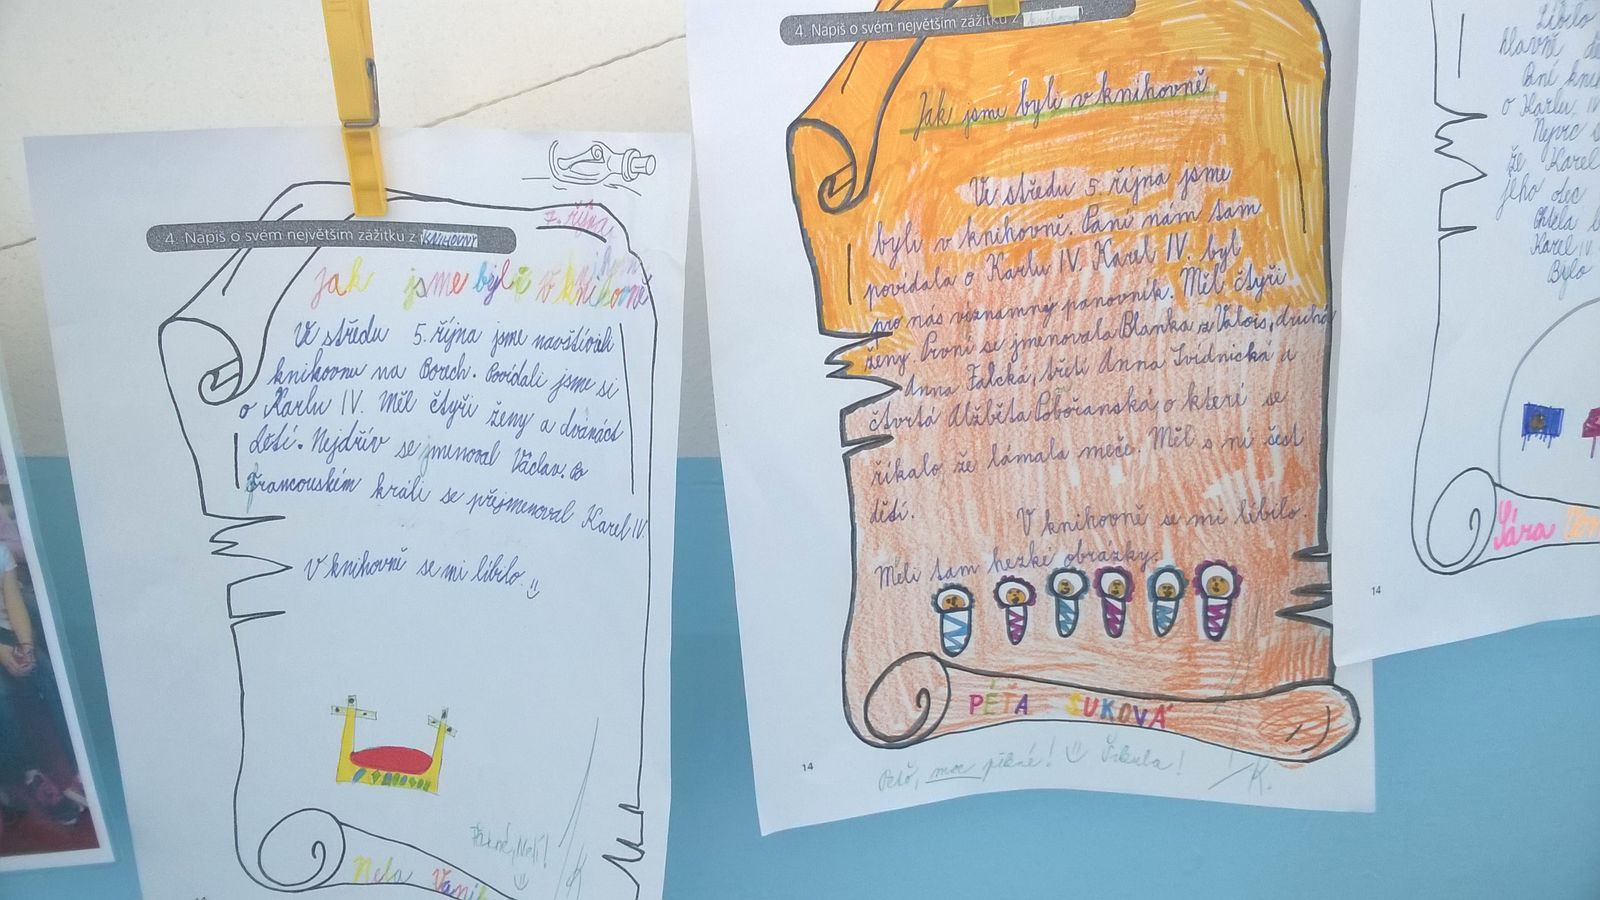 4. Napiš o svém největším zážitku z KNIHOVNY
7. října
Jak jsme byli v knihovně
Ve středu 5. října jsme navštívili
knihovnu na Borech. Povídali jsme si
o Karlu IV. Měl čtyři ženy a dvanáct
dětí. Nejdřív se jmenoval Václav. Po
francouském králi se přejmenoval Karel IV.
V knihovně se mi líbilo.
Pěkné, Neli!
K
Nela
4. Napiš o svém největším zážitku z knihovny
Jak jsme byli v knihovně
Ve středu 5. října jsme
byli v knihovně. Paní nám tam
povídala o Karlu IV. Karel IV. byl
pro nás významný panovník. Měl čtyři
ženy. První se jmenovala Blanka z Valois, druhá
Anna Falcká, třetí Anna Svídnická a
čtvrtá Alžběta Pobořanská o které se
říkalo, že lámala meče. Měl s ní šest
dětí.
V knihovně se mi líbilo.
Měli tam hezké obrázky.
PÉŤA SUKOVÁ
14
Peťo, moc pěkné! Šikula!
K.
Líbilo
hlavně
Paní
o Karlu IV
Nejvíc
že Karel
jeho otec
Chtěla
Karel IV.
Bylo
Sára
14